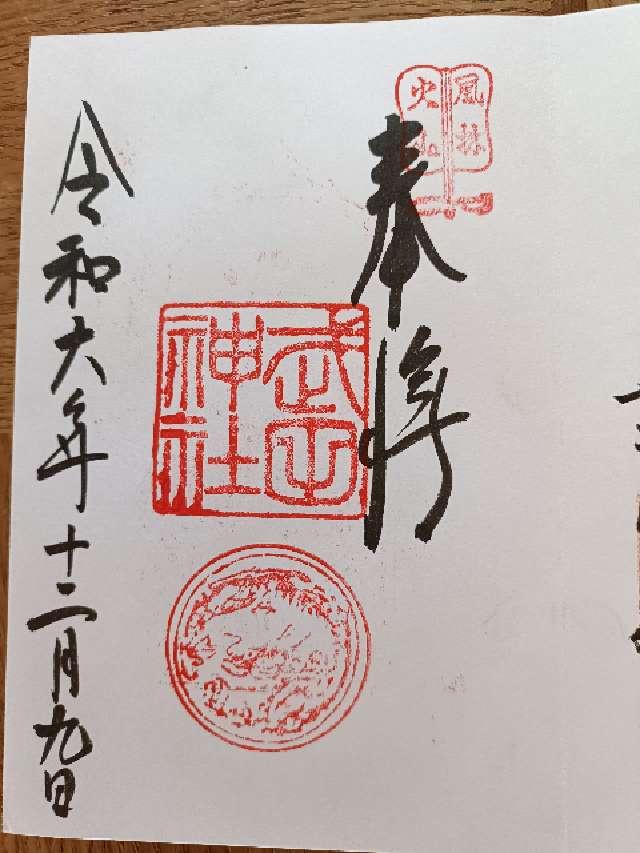 風林
火山
奉拝
武田
神社
令和六年十二月九日